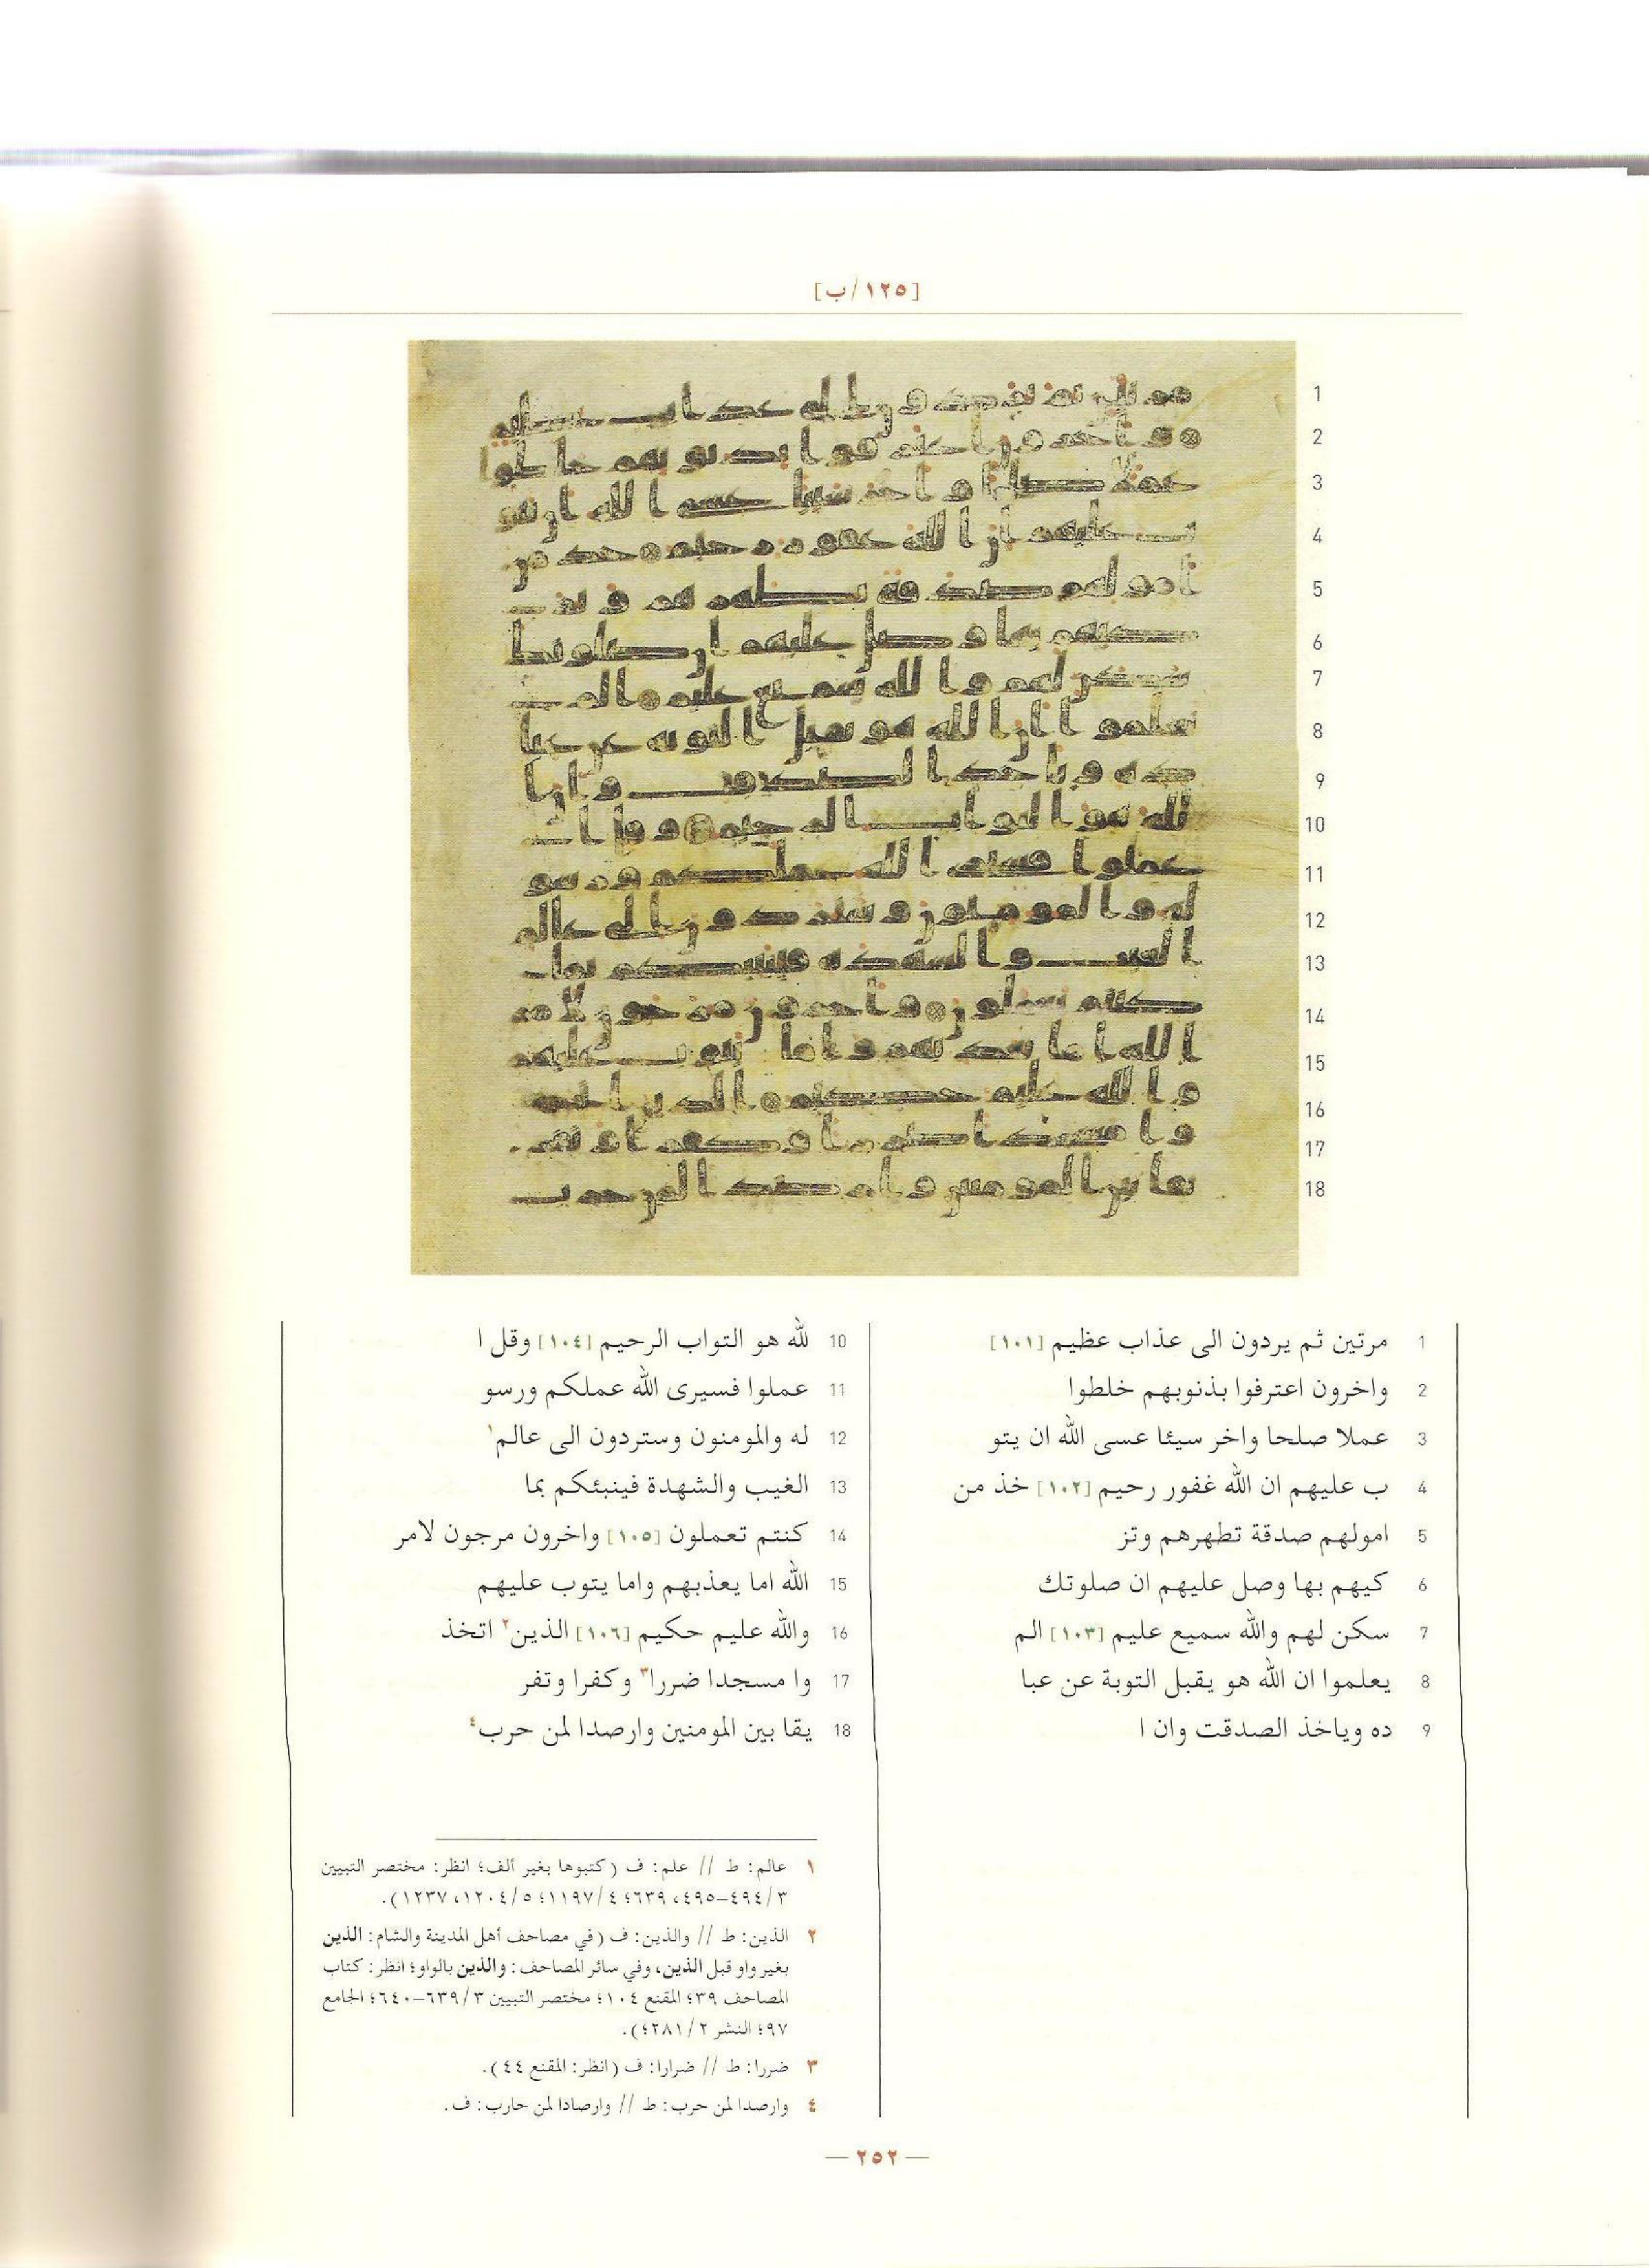 [١٢٥/ب]
1
2
3
4
5
6
7
8
9
10
11
12
13
14
15
16
17
18
1 مرتين ثم يردون الى عذاب عظيم [١٠١]
2 واخرون اعترفوا بذنوبهم خلطوا
3 عملا صلحا واخر سيئا عسى الله ان يتو
4 ب عليهم ان الله غفور رحيم [١٠٢] خذ من
5 امولهم صدقة تطهرهم وتز
6 كيهم بها وصل عليهم ان صلوتك
7 سكن لهم والله سميع عليم [١٠٣] الم
8 يعلموا ان الله هو يقبل التوبة عن عبا
9 ده وياخذ الصدقت وان ا
10 لله هو التواب الرحيم [١٠٤] وقل ا
11 عملوا فسيرى الله عملكم ورسو
12 له والمومنون وستردون الى عالم١
13 الغيب والشهدة فينبئكم بما
14 كنتم تعملون [١٠٥] واخرون مرجون لامر
15 الله اما يعذبهم واما يتوب عليهم
16 والله عليم حكيم [١٠٦] الذين٢ اتخذ
17 وا مسجدا ضررا٣ وكفرا وتفر
18 يقا بين المومنين وارصدا لمن حرب٤
١ عالم: ط // علم: ف (كتبوها بغير ألف؛ انظر: مختصر التبيين
٣/٤٩٤-٤٩٥، ٦٣٩؛ ٤/١١٩٧؛ ٥/١٢٠٤، ١٢٣٧).
٢ الذين: ط // والذين: ف (في مصاحف أهل المدينة والشام: الذين
بغير واو قبل الذين، وفي سائر المصاحف: والذين بالواو؛ انظر: كتاب
المصاحف ٣٩؛ المقنع ١٠٤؛ مختصر التبيين ٣/٦٣٩-٦٤٠؛ الجامع
٩٧؛ النشر ٢/٢٨١؛).
٣ ضررا: ط // ضرارا: ف (انظر: المقنع ٤٤).
٤ وارصدا لمن حرب: ط // وارصادا لمن حارب: ف.
— ٢٥٢ —